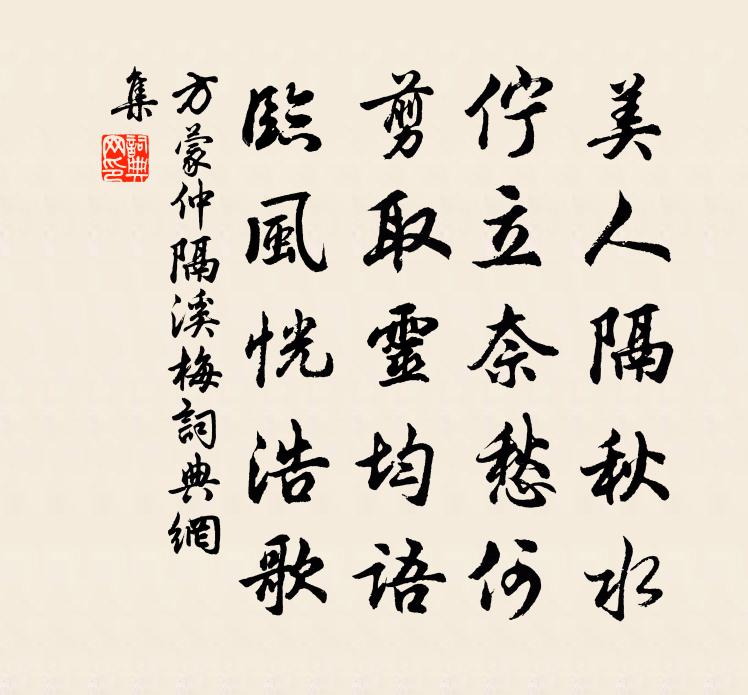 美人隔秋水
佇立奈愁何
剪取靈均語
臨風恍浩歌
方蒙仲隔溪梅詞典網
集
詞典網印